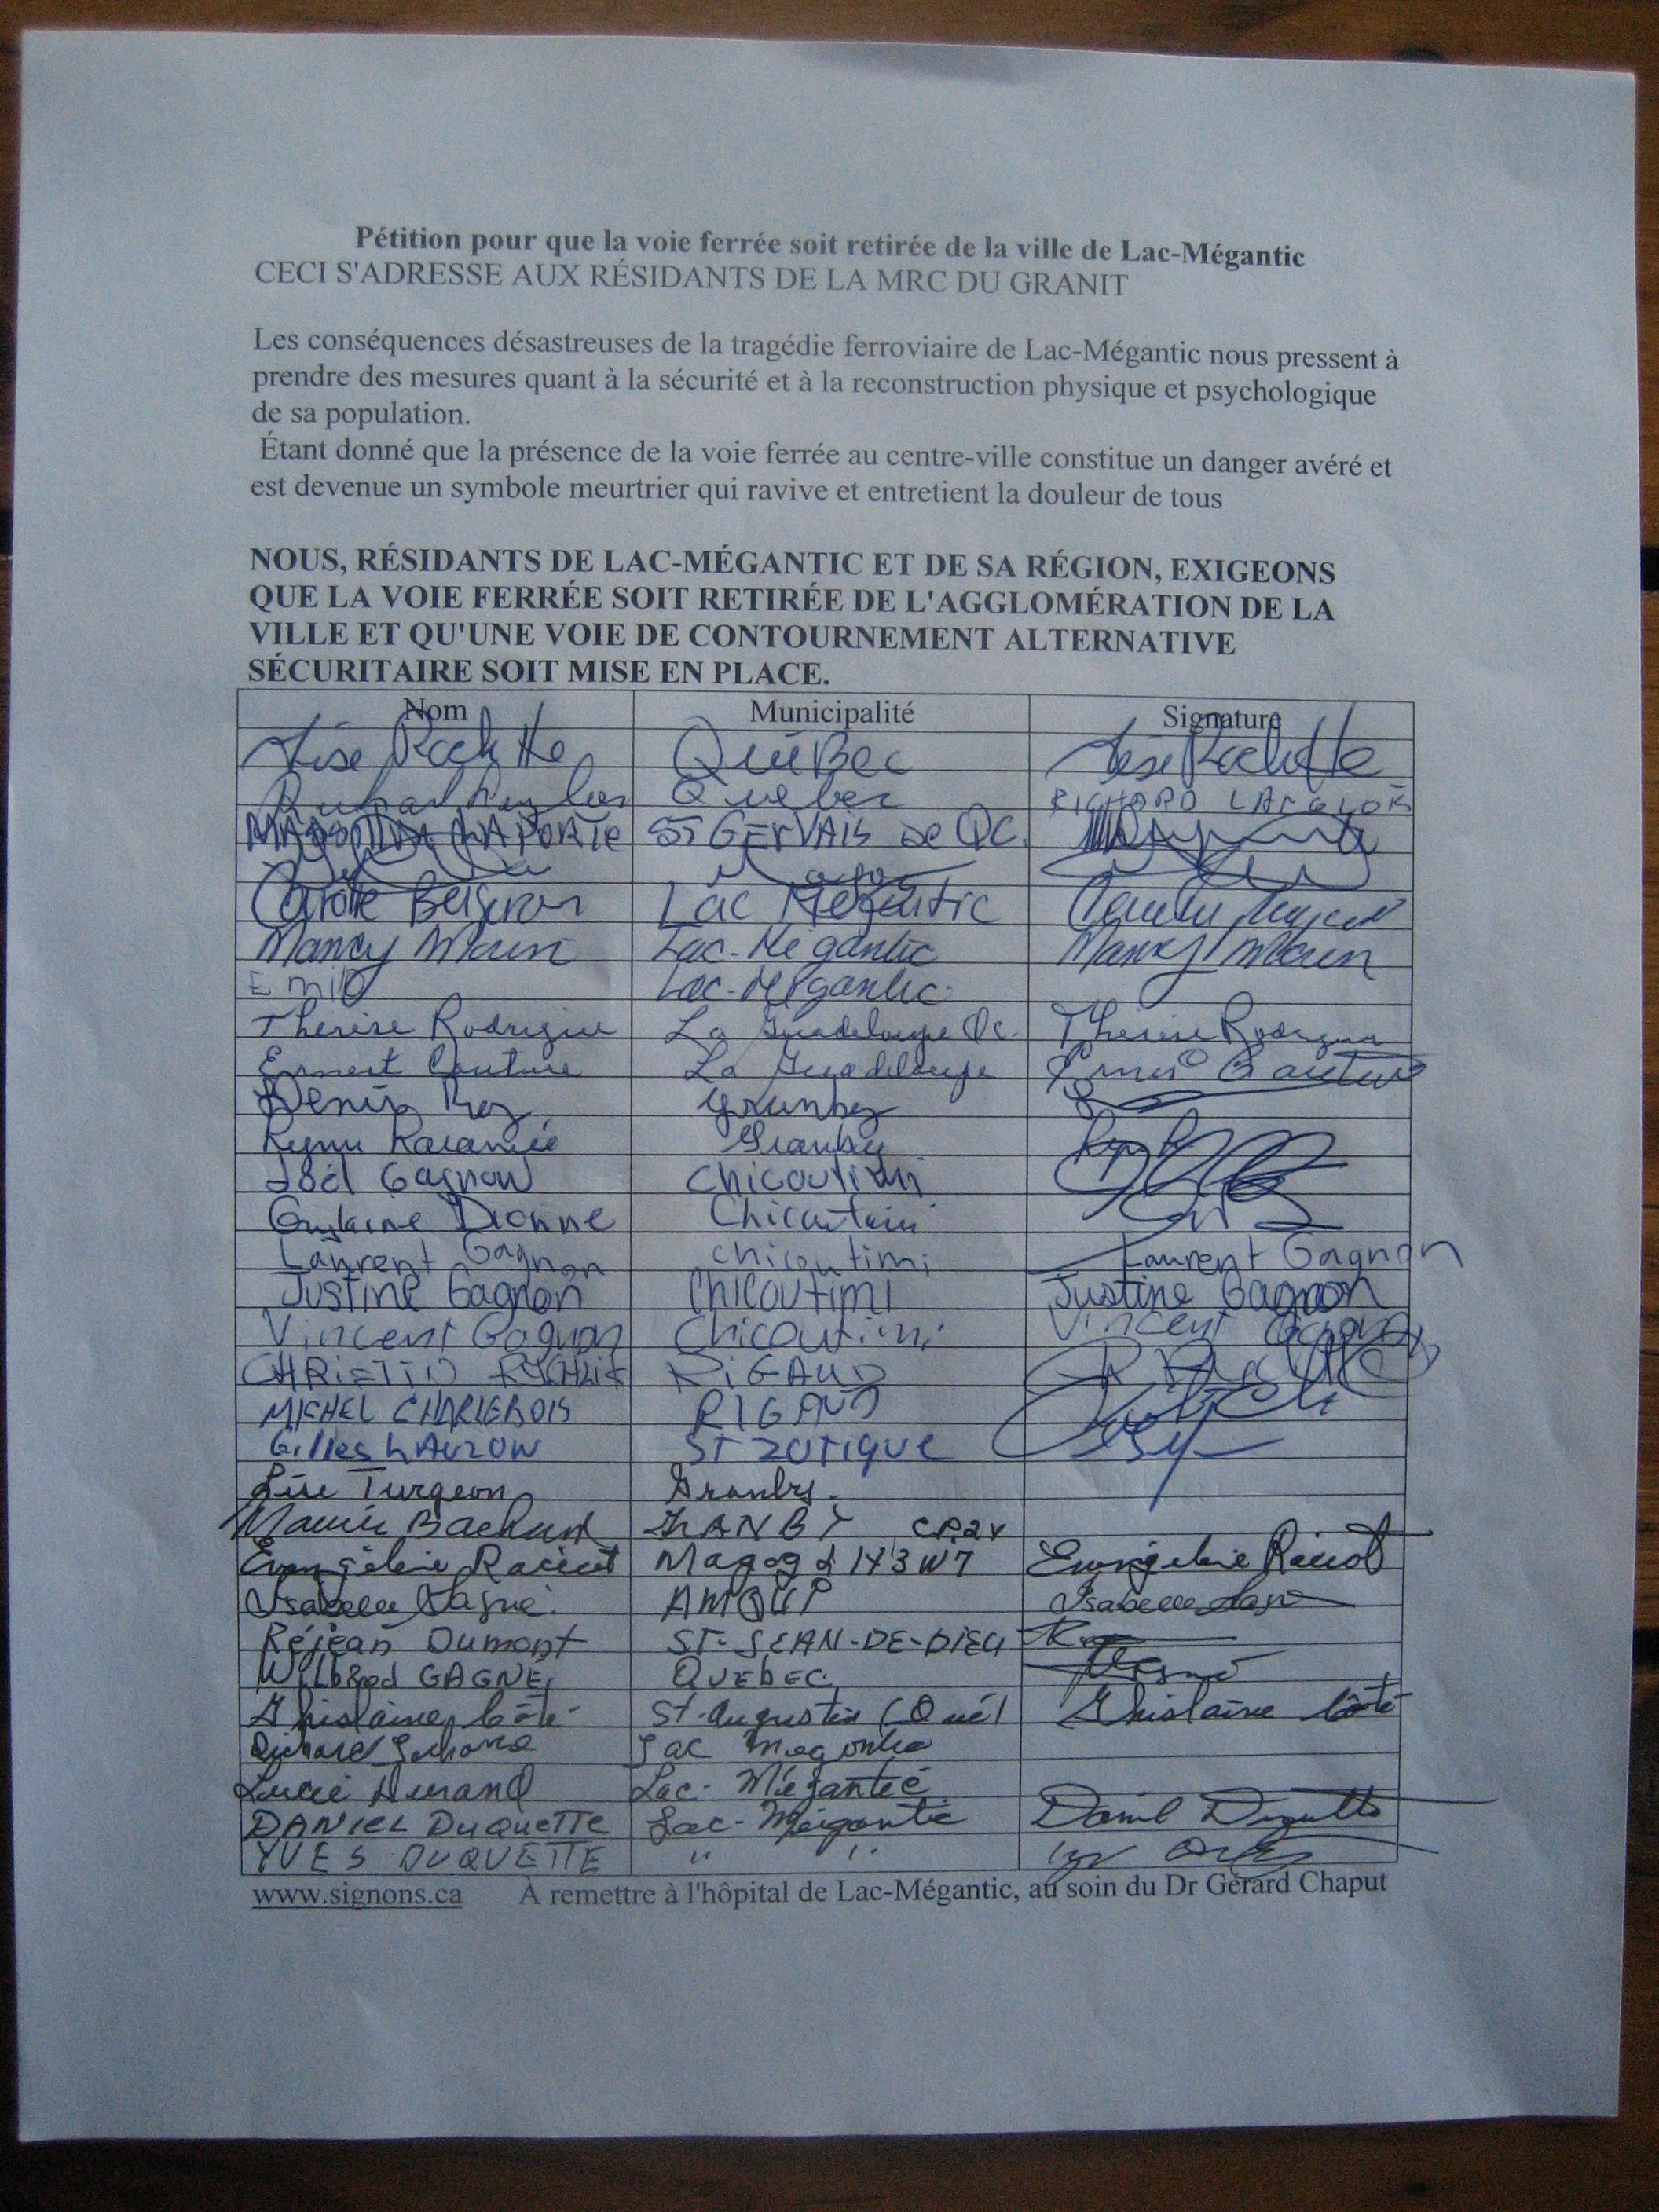 Pétition pour que la voie ferrée soit retirée de la ville de Lac-Mégantic
CECI S'ADRESSE AUX RÉSIDANTS DE LA MRC DU GRANIT
Les conséquences désastreuses de la tragédie ferroviaire de Lac-Mégantic nous pressent à
prendre des mesures quant à la sécurité et à la reconstruction physique et psychologique
de sa population.
Étant donné que la présence de la voie ferrée au centre-ville constitue un danger avéré et
est devenue un symbole meurtrier qui ravive et entretient la douleur de tous
NOUS, RÉSIDANTS DE LAC-MÉGANTIC ET DE SA RÉGION, EXIGEONS
QUE LA VOIE FERRÉE SOIT RETIRÉE DE L'AGGLOMÉRATION DE LA
VILLE ET QU'UNE VOIE DE CONTOURNEMENT ALTERNATIVE
SÉCURITAIRE SOIT MISE EN PLACE.
Nom Municipalité Signature
Lise Rochette QuéBec Lise Rochette
Québec RICHARD
LAPORTE ST GERVAIS DE QC.
Carole Lac Mégantic
Nancy Morin Lac-Mégantic Nancy Morin
Emile Lac-Mégantic
Thérèse Rodrigue La Guadeloupe Qc. Thérèse Rodrigue
Ernest Couture La Guadeloupe Couture
Denis Roy Granby
Granby
Joël Gagnon Chicoutimi
Guylaine Dionne Chicoutimi
Laurent Gagnon chicoutimi Laurent Gagnon
Justine Gagnon Chicoutimi Justine Gagnon
Vincent Gagnon Chicoutimi Vincent Gagnon
RIGAUD
MICHEL CHARLEBOIS RIGAUD
Gilles LAUZON ST ZOTIQUE
Lise Turgeon Granby.
Evangéline Racicot Magog J1X3W7 Evangéline Racicot
Isabelle Gagné. AMQUI Isabelle
Réjean Dumont ST-JEAN-DE-DIEU
Wilbrod GAGNE QUEBEC
Ghislaine Côté St-Augustin (Qué) Ghislaine Côté
Lac Mégantic
Lucie Durand Lac-Mégantic
DANIEL DUQUETTE Lac-Mégantic Daniel Duquette
YVES DUQUETTE " "
www.signons.ca À remettre à l'hôpital de Lac-Mégantic, au soin du Dr Gérard Chaput